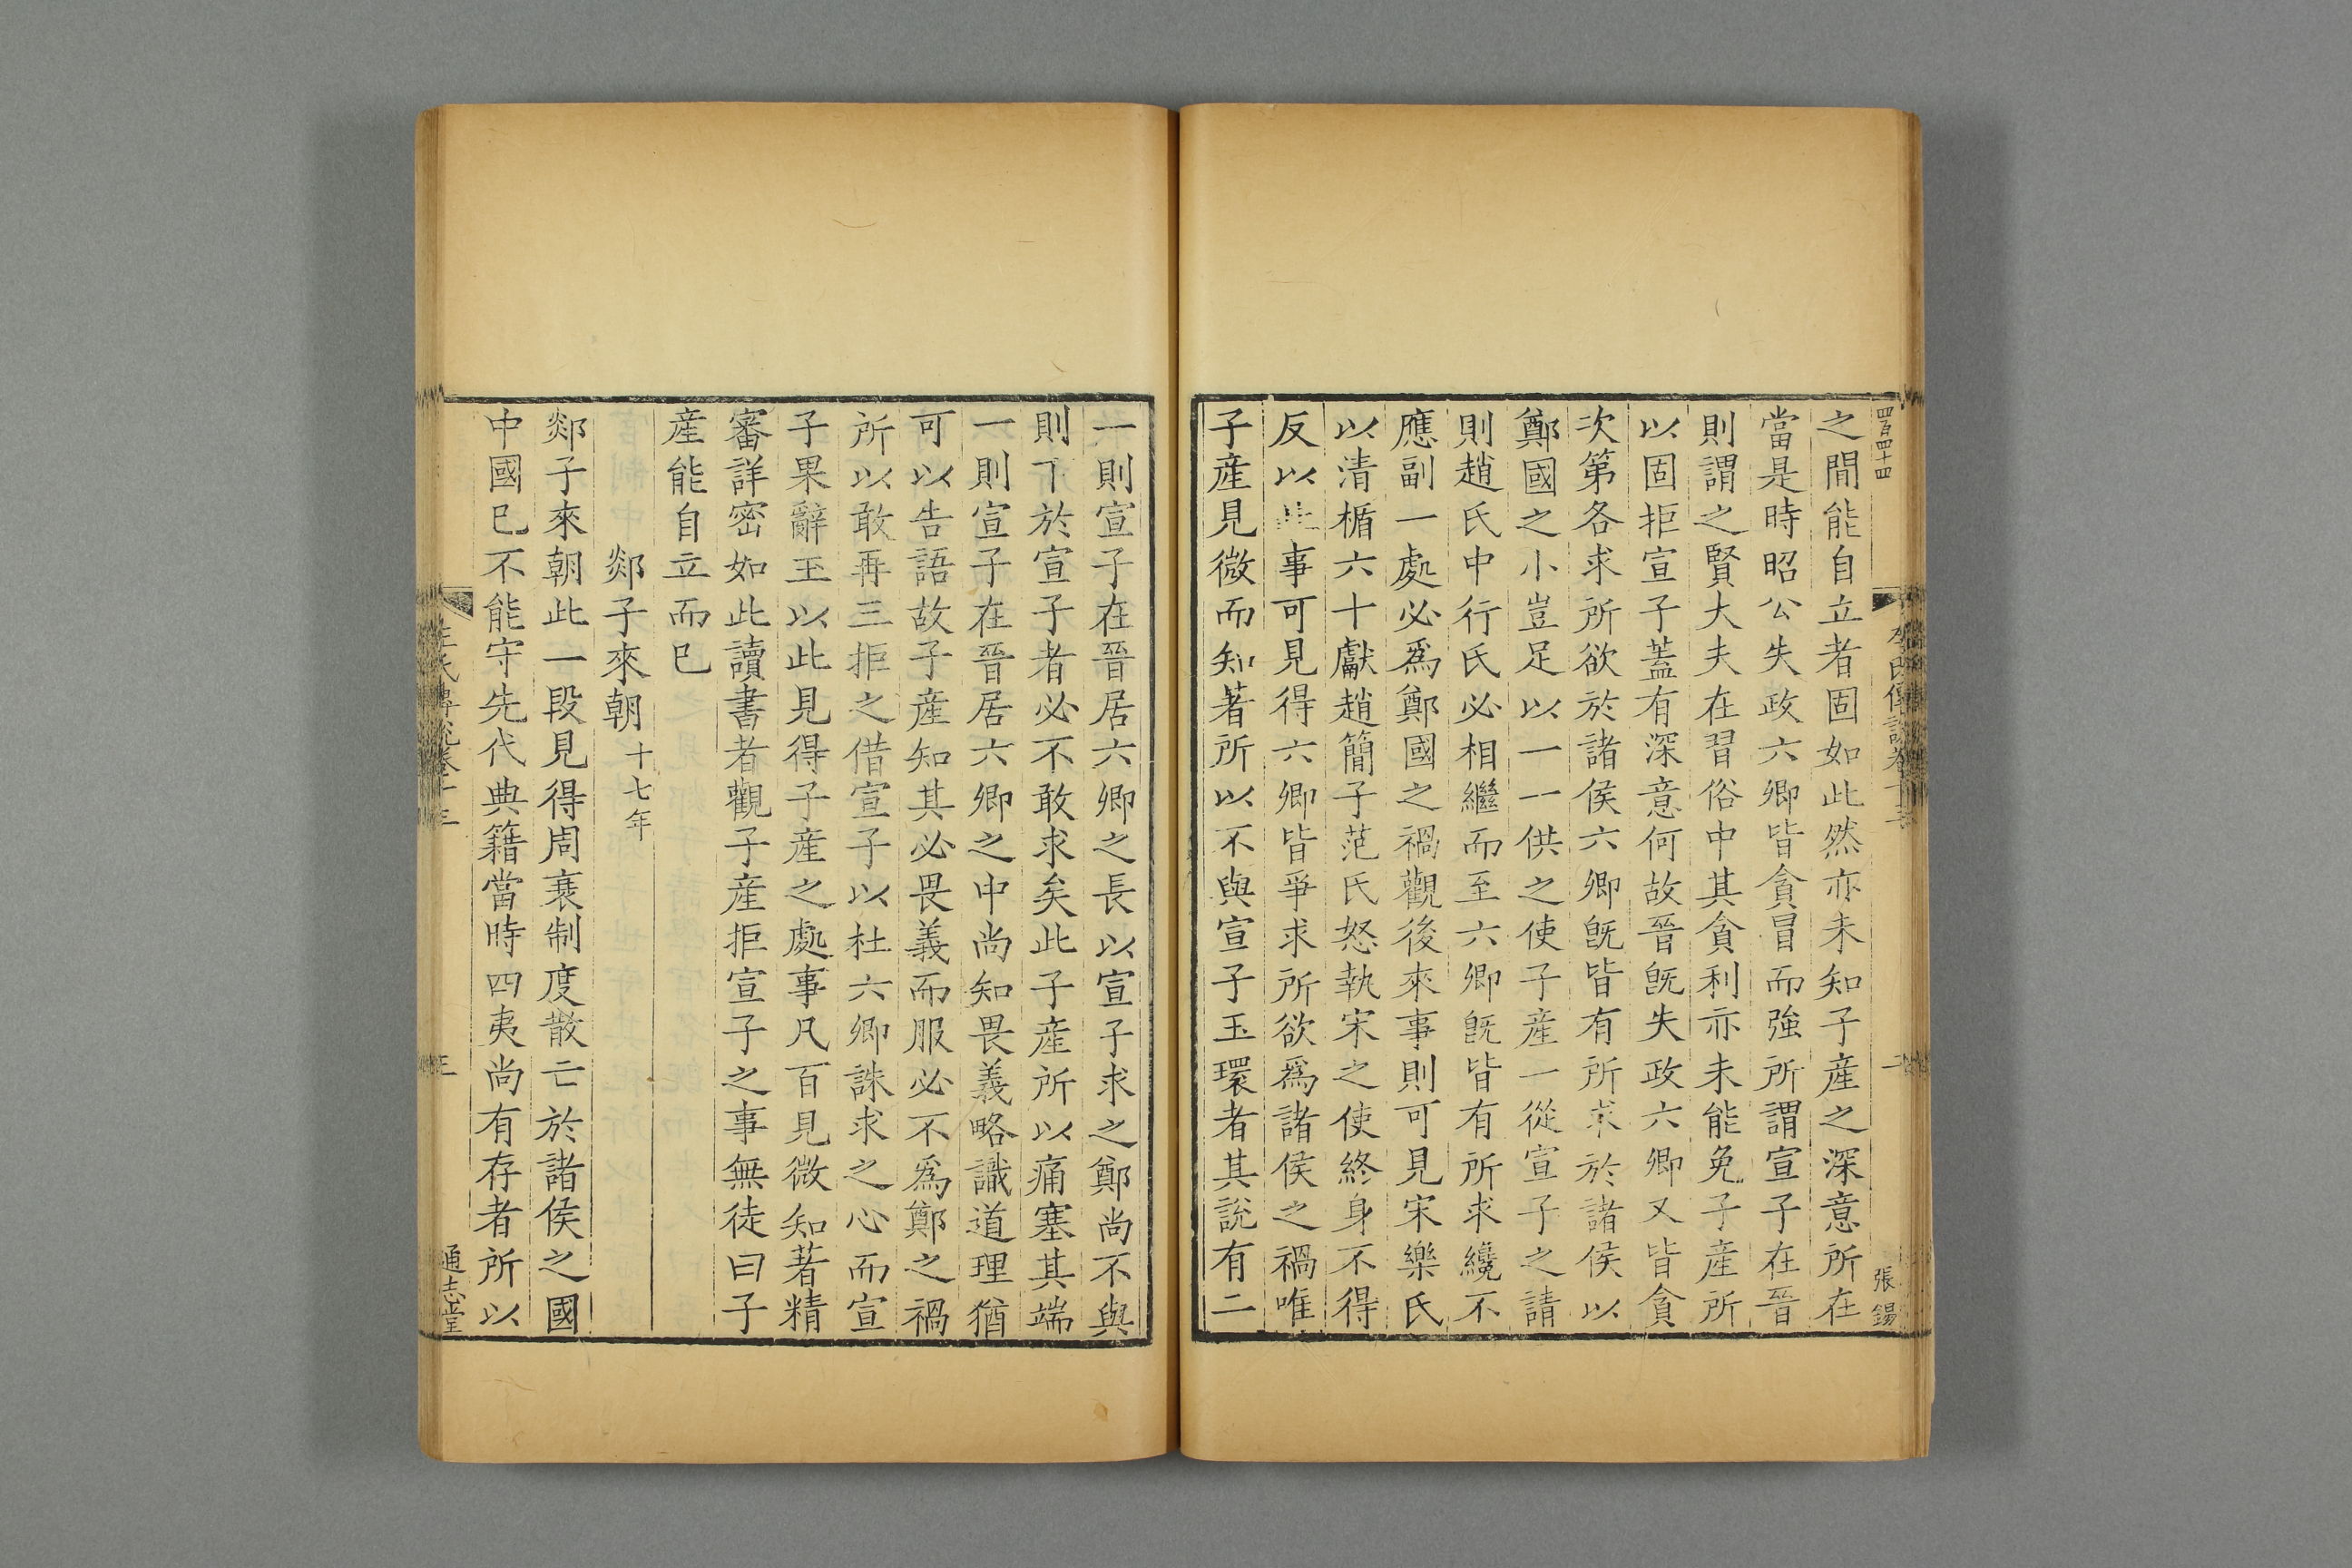 四百四十四
張錫
之間能自立者固如此然亦未知子産之深意所在
當是時昭公失政六卿皆貪冒而強所謂宣子在晉
則謂之賢大夫在習俗中其貪利亦未能免子產所
以固拒宣子蓋有深意何故晉旣失政六卿又皆貪
次第各求所欲於諸侯六卿旣皆有所求於諸侯以
鄭國之小豈足以一一供之使子産一從宣子之請
則趙氏中行氏必相繼而至六卿旣皆有所求纔不
應副一處必爲鄭國之禍觀後來事則可見宋樂氏
以清楯六十獻趙簡子范氏怒執宋之使終身不得
反以此事可見得六卿皆爭求所欲爲諸侯之禍唯
子産見微而知著所以不與宣子玉環者其說有二
一則宣子在晉居六卿之長以宣子求之鄭尚不與
則下於宣子者必不敢求矣此子產所以痛塞其端
一則宣子在晉居六卿之中尚知畏義略識道理猶
可以告語故子產知其必畏義而服必不爲鄭之禍
所以敢再三拒之借宣子以杜六卿誅求之心而宣
子果辭玉以此見得子產之處事凡百見微知著精
審詳密如此讀書者觀子產拒宣子之事無徒曰子
産能自立而已
郯子來朝十七年
郯子來朝此一段見得周衰制度散亡於諸侯之國
中國已不能守先代典籍當時四夷尚有存者所以
通志堂